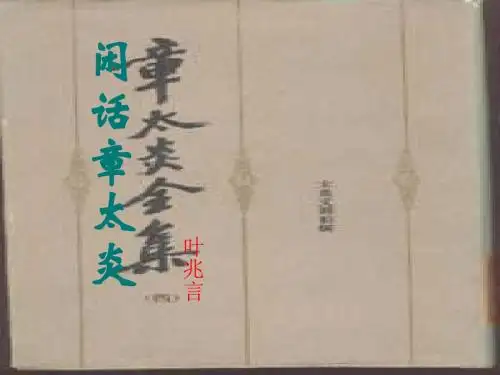 闲话章太炎
章太炎全集
(四)
叶兆言